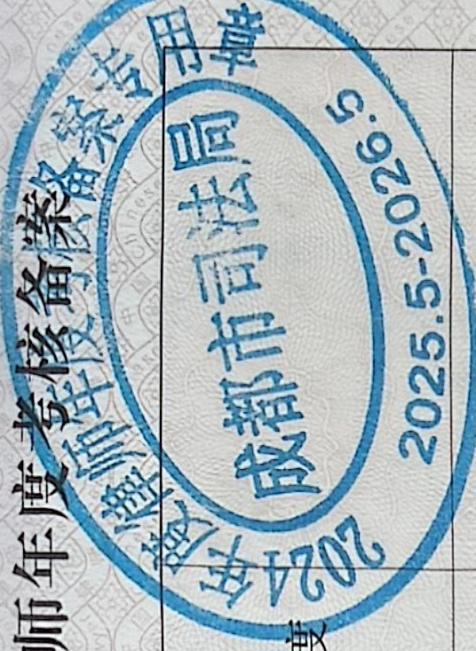 师年度考核备案
2024年度律师年度考核备案专用章
成都市司法局
2025.5-2026.5
度